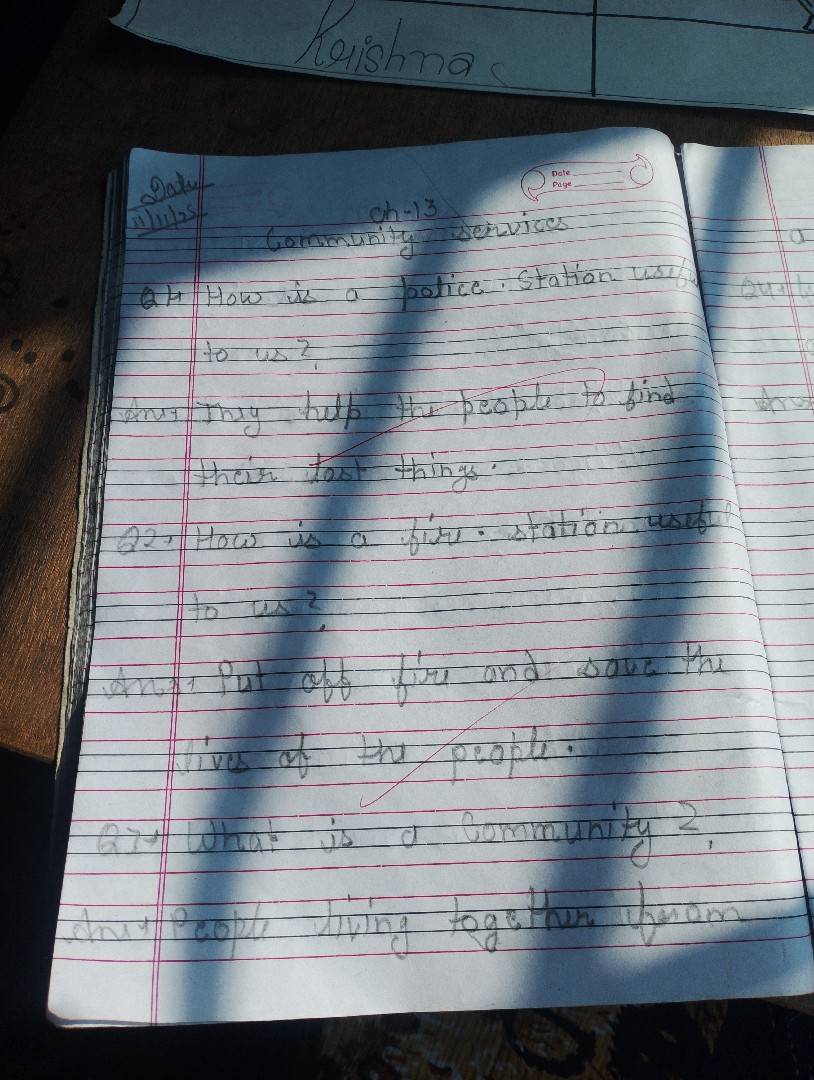 Krishna
Date
Page
Date
11/11/25
Ch-13
Community services
Q1→ How is a police station useful
to us?
Ans→ They help the people to find
their lost things.
Q2→ How is a fire station useful
to us?
Ans→ Put off fire and save the
lives of the people.
Q3→ What is a Community?
Ans→ People living together from
a
Q4→
Ans